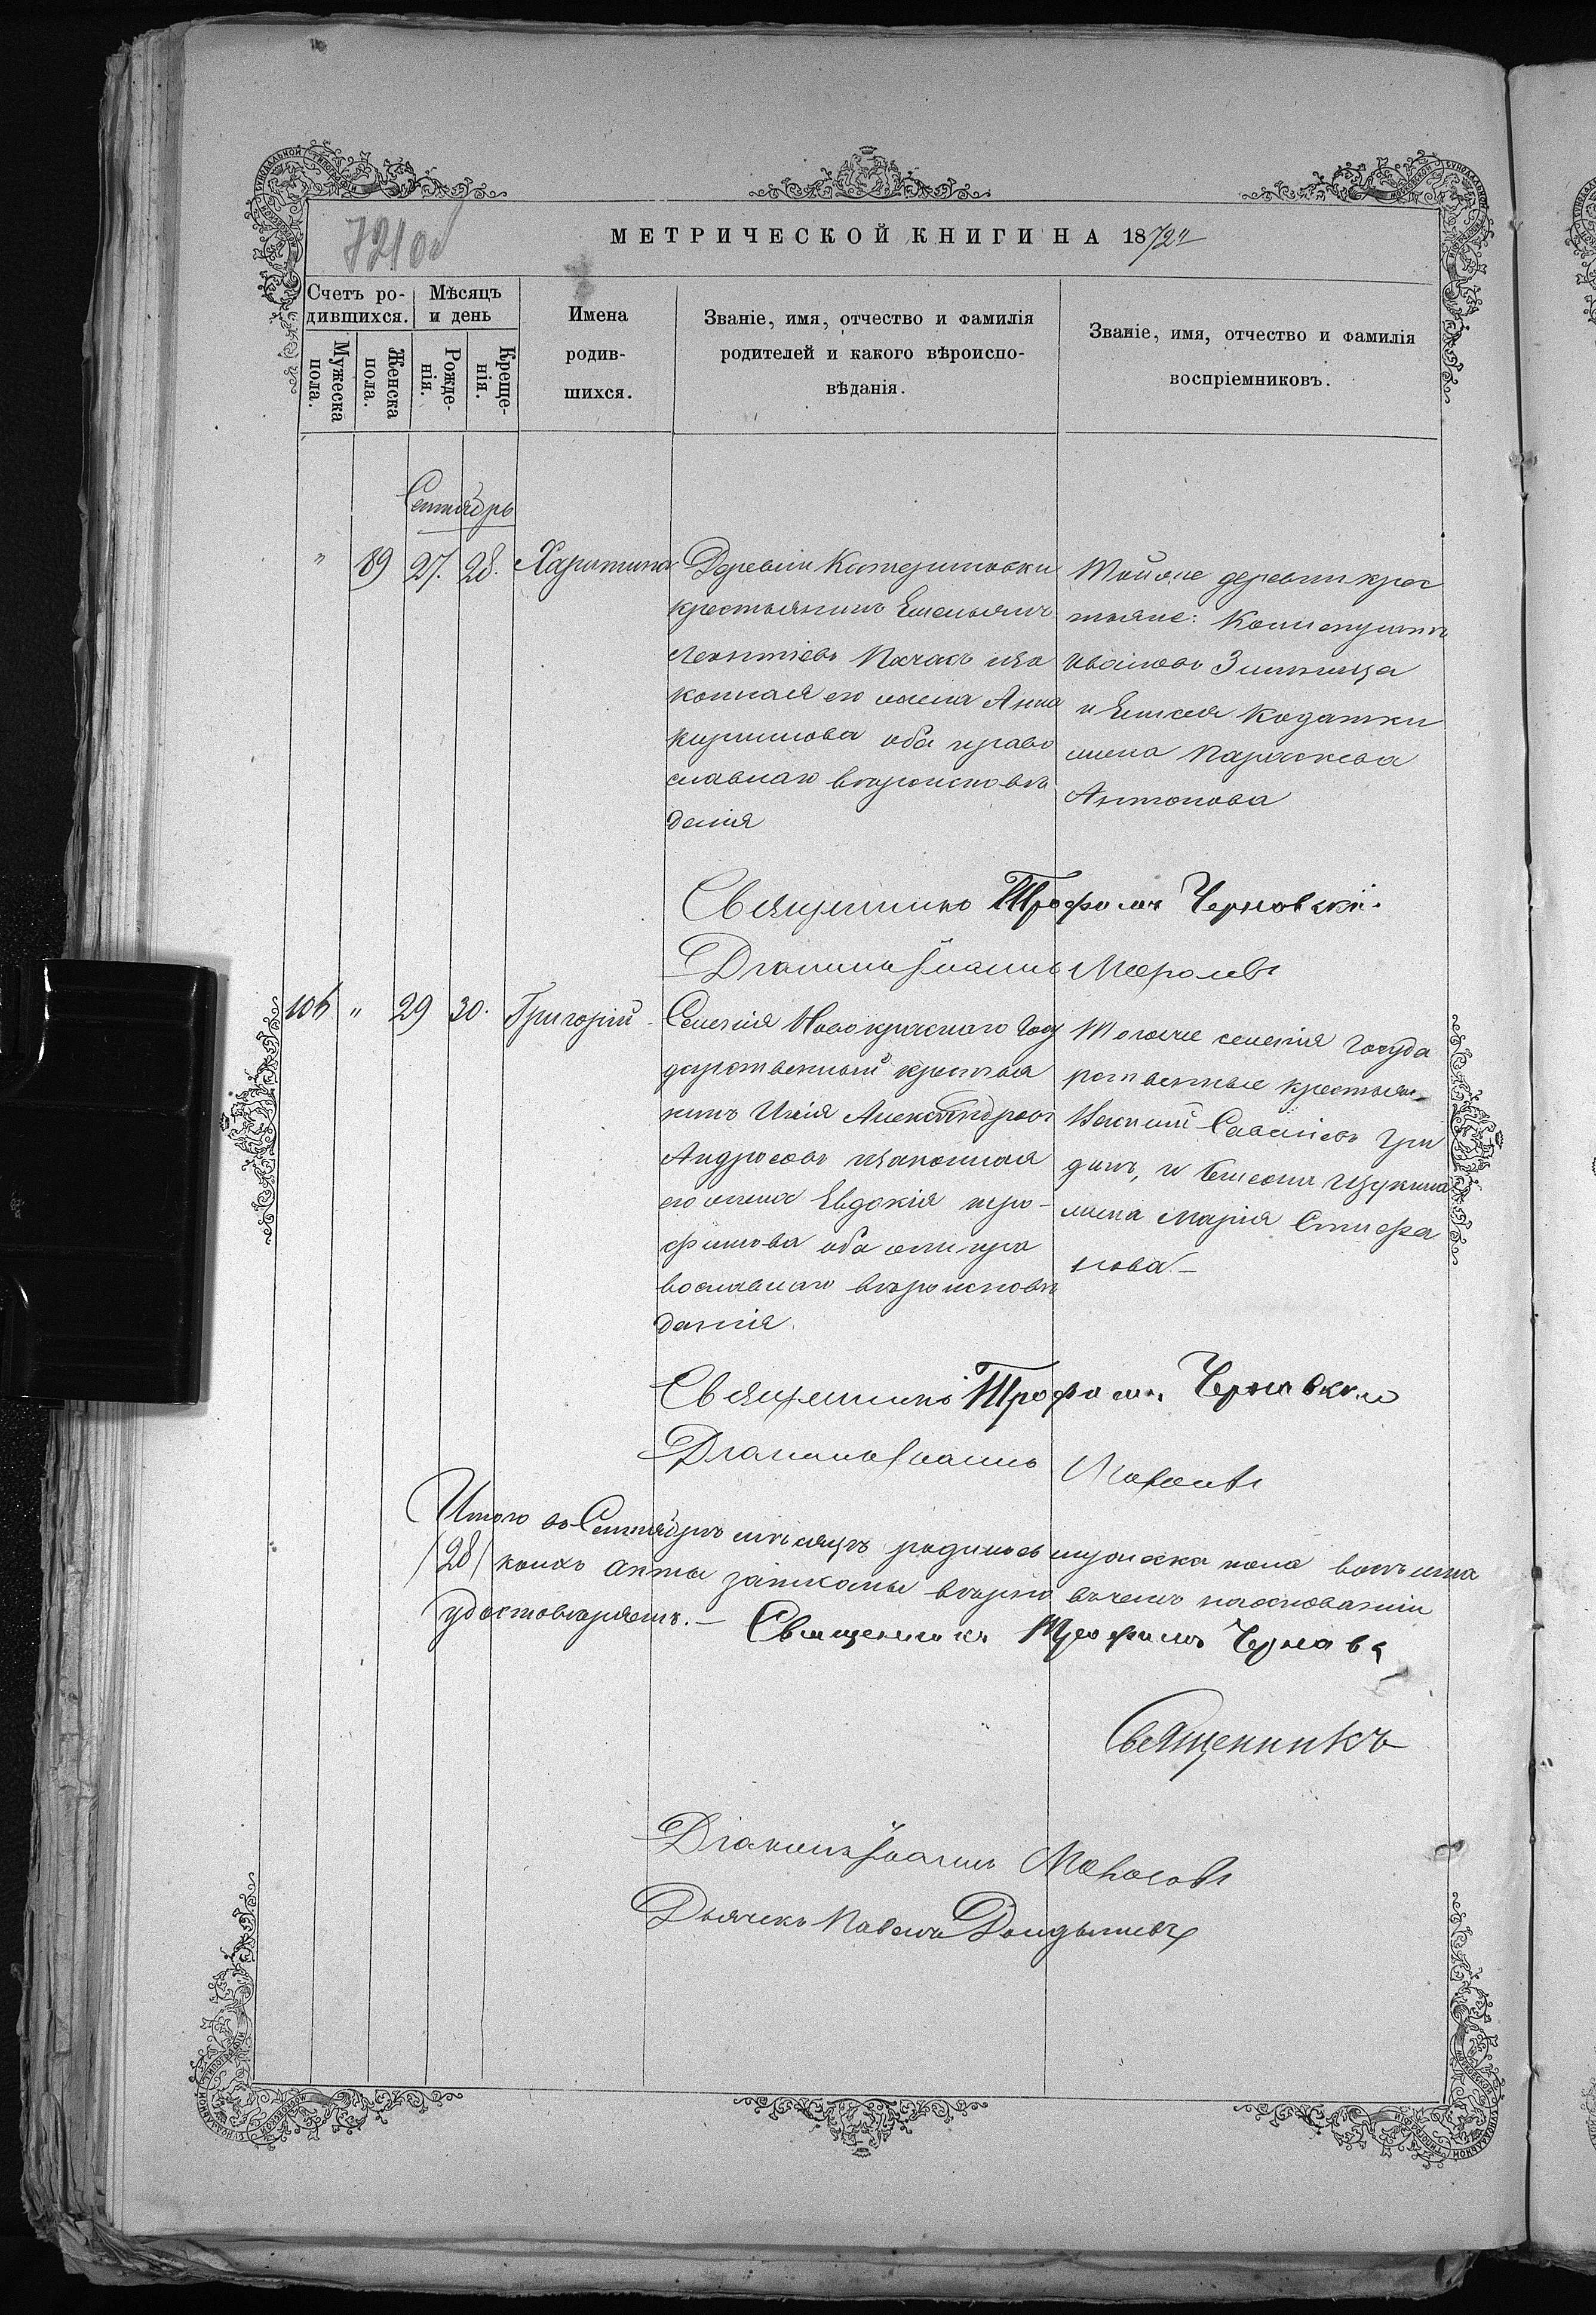 721 об
МЕТРИЧЕСКОЙ КНИГИ НА 1872 г
Счетъ ро-
дившихся.
Мужеска
пола.
Женска
пола.
Мѣсяцъ
и день
Рожде-
нія.
Креще-
нія.
Имена
родив-
шихся.
Званіе, имя, отчество и фамилія
родителей и какого вѣроиспо-
вѣданія.
Званіе, имя, отчество и фамилія
воспріемниковъ.
Сентябрь
" 89 27. 28. Харитина
Деревни Катериновки
крестьянинъ Емельянъ
Леонтіевъ и за
конная его жена Анна
Кирилова оба право
славнаго вѣроисповѣ
данія
Той же деревни крес
тьяне:
Ивановъ
и
жена Параскева
Антонова
Священникъ Трофимъ Черновскій.
Діаконъ Іоаннъ
106 " 29 30. Григорій
Селенія Новокраснаго Госу
дарственный крестья
нинъ Илія Александровъ
Андросовъ и законная
его жена Евдокія Тро-
фимова оба они пра
вославнаго вѣроисповѣ
данія
Того же селенія Госуда
рственные крестьян-
Савеліевъ Гри
динъ, и
жена Марія Стефа
нова-
Священникъ Трофимъ
Діаконъ Іоаннъ
Итого въ Сентябрѣ мѣсяцѣ родилось мужеска пола
/28/ коихъ акты записаны вѣрно въ чемъ
удостовѣряемъ.- Священникъ Трофимъ
Священникъ
Діаконъ Іоаннъ
Дьячекъ Павелъ